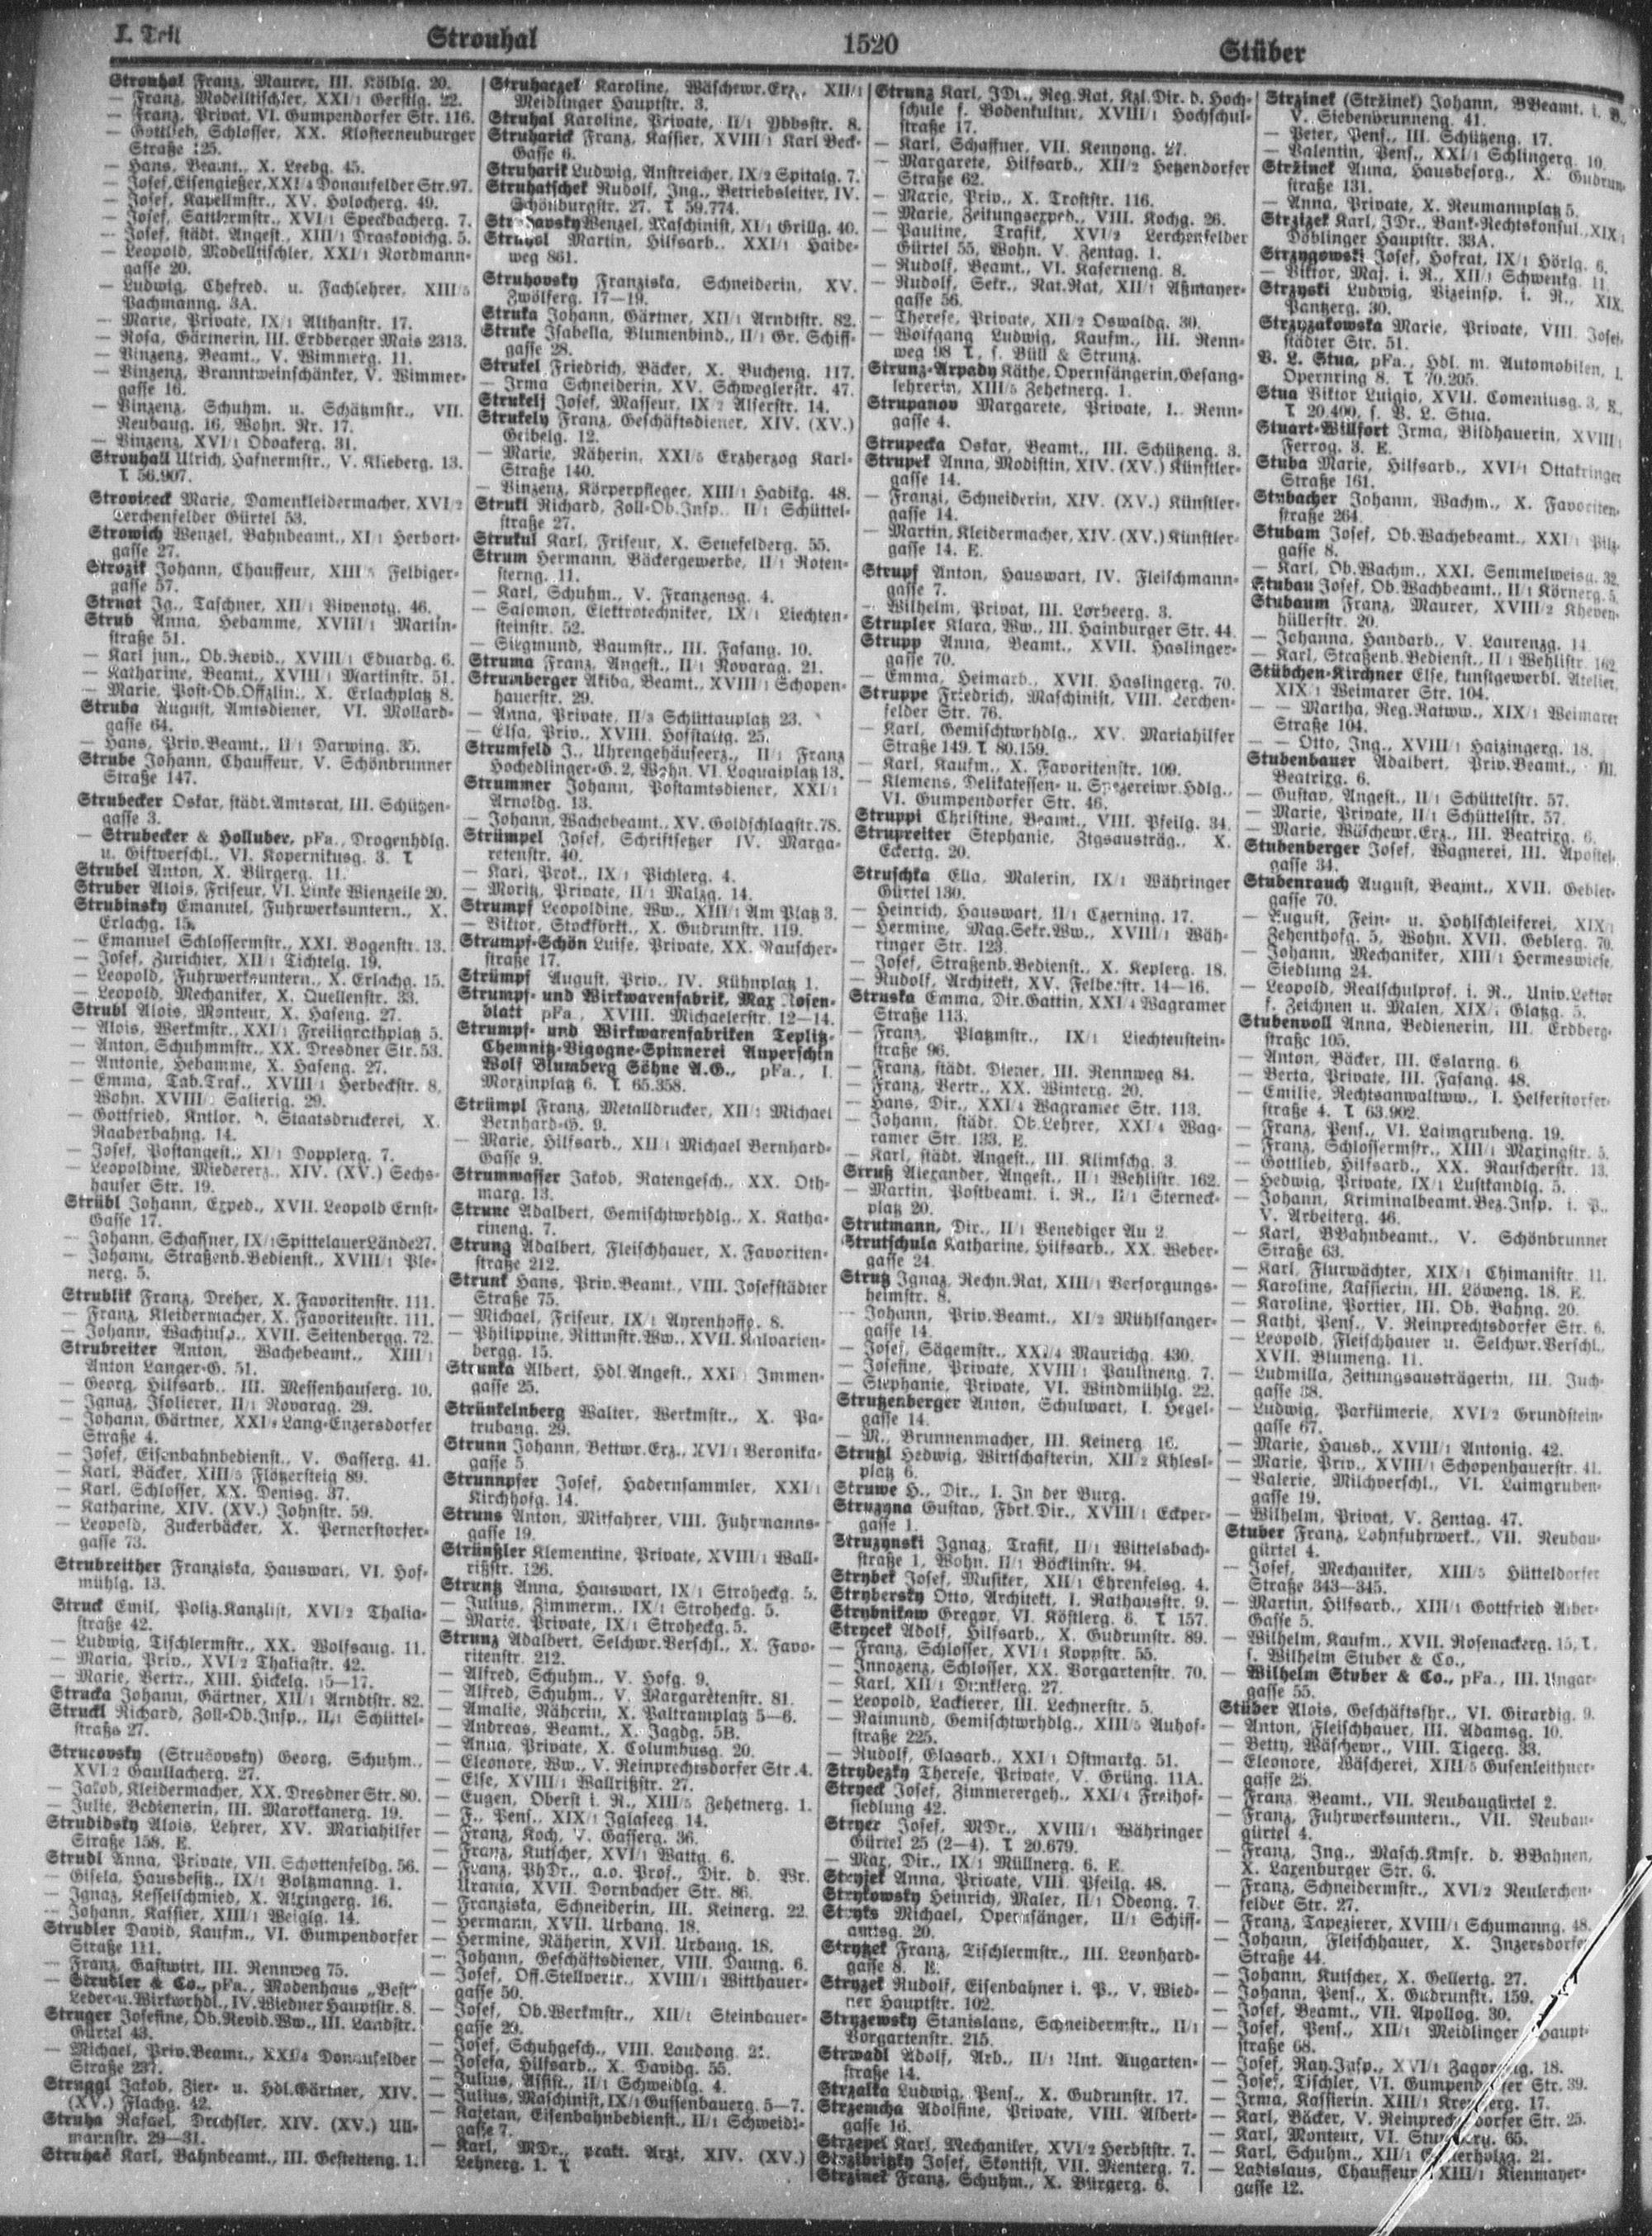 I. Teil
Strouhal
1520
Stüber
Strouhal Franz, Maurer, III. Kölblg. 20.
— Franz, Modelltischler, XXI/1 Gerstlg. 22.
— Franz, Privat, VI. Gumpendorfer Str. 116.
— Gottlieb, Schlosser, XX. Klosterneuburger
Straße 125.
— Hans, Beamt., X. Leebg. 45.
— Josef, Eisengießer, XXI/4 Donaufelder Str. 97.
— Josef, Kapellmstr., XV. Holocherg. 49.
— Josef, Sattlermstr., XVI/1 Speckbacherg. 7.
— Josef, städt. Angest., XIII/1 Draskovichg. 5.
— Leopold, Modelltischler, XXI/1 Nordmann-
gasse 20.
— Ludwig, Chefred. u. Fachlehrer, XIII/5
Pachmanng. 3A.
— Marie, Private, IX/1 Althanstr. 17.
— Rosa, Gärtnerin, III. Erdberger Mais 2313.
— Vinzenz, Beamt., V. Wimmerg. 11.
— Vinzenz, Branntweinschänker, V. Wimmer-
gasse 16.
— Vinzenz, Schuhm. u. Schätzmstr., VII.
Neubaug. 16, Wohn. Nr. 17.
— Vinzenz, XVI/1 Odoakerg. 31.
Strouhall Ulrich, Hafnermstr., V. Klieberg. 13.
T. 56.907.
Strovicek Marie, Damenkleidermacher, XVI/2
Lerchenfelder Gürtel 53.
Strowich Wenzel, Bahnbeamt., XI/1 Herbort-
gasse 27.
Strozik Johann, Chauffeur, XIII/5 Felbiger-
gasse 57.
Struat Ig., Taschner, XII/1 Vivenotg. 46.
Strub Anna, Hebamme, XVIII/1 Martin-
straße 51.
— Karl jun., Ob.Revid., XVIII/1 Eduardg. 6.
— Katharine, Beamt., XVIII/1 Martinstr. 51.
— Marie, Post-Ob.Offzlin., X. Erlachplatz 8.
Struba August, Amtsdiener, VI. Mollard-
gasse 64.
— Hans, Priv.Beamt., II/1 Darwing. 35.
Strube Johann, Chauffeur, V. Schönbrunner
Straße 147.
Strubecker Oskar, städt.Amtsrat, III. Schützen-
gasse 3.
— Strubecker & Holluber, pFa., Drogenhdlg.
u. Giftverschl., VI. Kopernikusg. 3. T.
Strubel Anton, X. Bürgerg. 11.
Struber Alois, Friseur, VI. Linke Wienzeile 20.
Strubinsky Emanuel, Fuhrwerksuntern., X.
Erlachg. 15.
— Emanuel Schlossermstr., XXI. Bogenstr. 13.
— Josef, Zurichter, XII/1 Tichtelg. 19.
— Leopold, Fuhrwerksuntern., X. Erlachg. 15.
— Leopold, Mechaniker, X. Quellenstr. 33.
Strubl Alois, Monteur, X. Haseng. 27.
— Alois, Werkmstr., XXI/1 Freiligrathplatz 5.
— Anton, Schuhmmstr., XX. Dresdner Str. 53.
— Antonie, Hebamme, X. Haseng. 27.
— Emma, Tab.Traf., XVIII/1 Herbeckstr. 8,
Wohn. XVIII/1 Salierig. 29.
— Gottfried, Kntlor. d. Staatsdruckerei, X.
Raaberbahng. 14.
— Josef, Postangest., XI/1 Dopplerg. 7.
— Leopoldine, Miedererz., XIV. (XV.) Sechs-
hauser Str. 19.
Strübl Johann, Exped., XVII. Leopold Ernst-
Gasse 17.
— Johann, Schaffner, IX/1 Spittelauer Lände 27.
— Johann, Straßenb.Bedienst., XVIII/1 Ple-
nerg. 5.
Strublik Franz, Dreher, X. Favoritenstr. 111.
— Franz, Kleidermacher, X. Favoritenstr. 111.
— Johann, Wachinsp., XVII. Seitenbergg. 72.
Strubreiter Anton, Wachebeamt., XIII/1
Anton Langer-G. 51.
— Georg, Hilfsarb., III. Messenhauserg. 10.
— Ignaz, Isolierer, II/1 Novarag. 29.
— Johann, Gärtner, XXI/4 Lang-Enzersdorfer
Straße 4.
— Josef, Eisenbahnbedienst., V. Gasserg. 41.
— Karl, Bäcker, XIII/5 Flötzersteig 89.
— Karl, Schlosser, XX. Denisg. 37.
— Katharine, XIV. (XV.) Johnstr. 59.
— Leopold, Zuckerbäcker, X. Pernerstorfer-
gasse 73.
Strubreither Franziska, Hauswart, VI. Hof-
mühlg. 13.
Struck Emil, Poliz.Kanzlist, XVI/2 Thalia-
straße 42.
— Ludwig, Tischlermstr., XX. Wolfsaug. 11.
— Maria, Priv., XVI/2 Thaliastr. 42.
— Marie, Vertr., XIII. Hickelg. 15—17.
Strucka Johann, Gärtner, XII/1 Arndtstr. 82.
Struckl Richard, Zoll-Ob.Insp., II/1 Schüttel-
straße 27.
Strucovsky (Stručovsky) Georg, Schuhm.,
XVI/2 Gaullacherg. 27.
— Jakob, Kleidermacher, XX. Dresdner Str. 80.
— Julie, Bedienerin, III. Marokkanerg. 19.
Strudidsky Alois, Lehrer, XV. Mariahilfer
Straße 158. E.
Strudl Anna, Private, VII. Schottenfeldg. 56.
— Gisela, Hausbesitz., IX/1 Boltzmanng. 1.
— Ignaz, Kesselschmied, X. Alxingerg. 16.
— Johann, Kassier, XIII/1 Weiglg. 14.
Strudler David, Kaufm., VI. Gumpendorfer
Straße 111.
— Franz, Gastwirt, III. Rennweg 75.
— Strudler & Co., pFa., Modenhaus „Best"
Leder-u.Wirkwrhdl., IV. Wiedner Hauptstr. 8.
Struger Josefine, Ob.Revid.Ww., III. Landstr.
Gürtel 43.
— Michael, Priv.Beamt., XXI/4 Donaufelder
Straße 237.
Struggl Jakob, Zier- u. Hdl.Gärtner, XIV.
(XV.) Flachg. 42.
Struha Rafael, Drechsler, XIV. (XV.) Ull-
mannstr. 29—31.
Struhac Karl, Bahnbeamt., III. Gestetteng. 1.
Struhaczek Karoline, Wäschewr.Erz., XII/1
Meidlinger Hauptstr. 3.
Struhal Karoline, Private, II/1 Ybbsstr. 8.
Struharick Franz, Kassier, XVIII/1 Karl Beck-
Gasse 6.
Struharik Ludwig, Anstreicher, IX/2 Spitalg. 7.
Struhatschek Rudolf, Ing., Betriebsleiter, IV.
Schönburgstr. 27. T. 59.774.
Wenzel, Maschinist, XI/1 Grillg. 40.
Struhol Martin, Hilfsarb., XXI/1 Haide-
weg 861.
Struhovsky Franziska, Schneiderin, XV.
Zwölferg. 17—19.
Struka Johann, Gärtner, XII/1 Arndtstr. 82.
Struke Isabella, Blumenbind., II/1 Gr. Schiff-
gasse 28.
Strukel Friedrich, Bäcker, X. Bucheng. 117.
— Irma Schneiderin, XV. Schweglerstr. 47.
Strukelj Josef, Masseur, IX/2 Alserstr. 14.
Strukely Franz, Geschäftsdiener, XIV. (XV.)
Geibelg. 12.
— Marie, Näherin, XXI/5 Erzherzog Karl-
Straße 140.
— Vinzenz, Körperpfleger, XIII/1 Hadikg. 48.
Strukl Richard, Zoll-Ob.Insp., II/1 Schüttel-
straße 27.
Strukul Karl, Friseur, X. Senefelderg. 55.
Strum Hermann, Bäckergewerbe, II/1 Roten-
sterng. 11.
— Karl, Schuhm., V. Franzensg. 4.
— Salomon, Elektrotechniker, IX/1 Liechten-
steinstr. 52.
— Siegmund, Baumstr., III. Fasang. 10.
Struma Franz, Angest., II/1 Novarag. 21.
Strumberger Akiba, Beamt., XVIII/1 Schopen-
hauerstr. 29.
— Anna, Private, II/3 Schüttauplatz 23.
— Elsa, Priv., XVIII. Hofstattg. 25.
Strumfeld J., Uhrengehäuseerz., II/1 Franz
Hochedlinger-G. 2, Wohn. VI. Loquaiplatz 13.
Strummer Johann, Postamtsdiener, XXI/1
Arnoldg. 13.
— Johann, Wachebeamt., XV. Goldschlagstr. 78.
Strümpel Josef, Schriftsetzer IV. Marga-
retenstr. 40.
— Karl, Prok., IX/1 Pichlerg. 4.
— Moritz, Private, II/1 Malzg. 14.
Strumpf Leopoldine, Ww., XIII/1 Am Platz 3.
— Viktor, Stockförkt., X. Gudrunstr. 119.
Strumpf-Schön Luise, Private, XX. Rauscher-
straße 17.
Strümpf August, Priv., IV. Kühnplatz 1.
Strumpf- und Wirkwarenfabrik, Max Rosen-
blatt pFa., XVIII. Michaelerstr. 12—14.
Strumpf- und Wirkwarenfabriken Teplitz-
Chemnitz-Vigogne-Spinnerei Auperschin
Wolf Blumberg Söhne A.G., pFa., I.
Morzinplatz 6. T. 65.358.
Strümpl Franz, Metalldrucker, XII/1 Michael
Bernhard-G. 9.
— Marie, Hilfsarb., XII/1 Michael Bernhard-
Gasse 9.
Strumwasser Jakob, Ratengesch., XX. Oth-
marg. 13.
Strune Adalbert, Gemischtwrhdlg., X. Katha-
rineng. 7.
Strung Adalbert, Fleischhauer, X. Favoriten-
straße 212.
Strunk Hans, Priv.Beamt., VIII. Josefstädter
Straße 75.
— Michael, Friseur, IX/1 Ayrenhoffg. 8.
— Philippine, Rittmstr.Ww., XVII. Kalvarien-
bergg. 15.
Strunka Albert, Hdl.Angest., XXI/ Immen-
gasse 25.
Strünkelnberg Walter, Werkmstr., X. Pa-
trubang. 29.
Strunn Johann, Bettwr.Erz., XVI/1 Veronika-
gasse 5.
Strunnpfer Josef, Hadernsammler, XXI/1
Kirchhofg. 14.
Struns Anton, Mitfahrer, VIII. Fuhrmanns-
gasse 19.
Strünßler Klementine, Private, XVIII/1 Wall-
rißstr. 126.
Struntz Anna, Hauswart, IX/1 Stroheckg. 5.
— Julius, Zimmerm., IX/1 Stroheckg. 5.
— Marie, Private, IX/1 Stroheckg. 5.
Strunz Adalbert, Selchwr.Verschl., X. Favo-
ritenstr. 212.
— Alfred, Schuhm., V. Hofg. 9.
— Alfred, Schuhm., V. Margaretenstr. 81.
— Amalie, Näherin, X. Paltramplatz 5—6.
— Andreas, Beamt., X. Jagdg. 5B.
— Anna, Private, X. Columbusg. 20.
— Eleonore, Ww., V. Reinprechtsdorfer Str. 4.
— Else, XVIII/1 Wallrißstr. 27.
— Eugen, Oberst i. R., XIII/5 Zehetnerg. 1.
— F., Pens., XIX/1 Iglaseeg. 14.
— Franz, Koch, V. Gasserg. 36.
— Franz, Kutscher, XVI/1 Wattg. 6.
— Franz, PhDr., a.o. Prof., Dir. d. Wr.
Urania, XVII. Dornbacher Str. 86.
— Franziska, Schneiderin, III. Keinerg. 22.
— Hermann, XVII. Urbang. 18.
— Hermine, Näherin, XVII. Urbang. 18.
— Johann, Geschäftsdiener, VIII. Daung. 6.
— Josef, Off.Stellvertr., XVIII/1 Witthauer-
gasse 50.
— Josef, Ob.Werkmstr., XII/1 Steinbauer-
gasse 29.
— Josef, Schuhgesch., VIII. Laudong.
— Josefa, Hilfsarb., X. Davidg. 55.
— Julius, Assist., II/1 Schweidlg. 4.
— Julius, Maschinist, IX/1 Gussenbauerg. 5—7.
— Kajetan, Eisenbahnbedienst., II/1 Schweidl-
gasse 7.
— Karl, MDr., prakt. Arzt, XIV. (XV.)
Lehnerg. 1. T.
Strunz Karl, JDr., Reg.Rat, Kzl.Dir. d. Hoch-
schule f. Bodenkultur, XVIII/1 Hochschul-
straße 17.
— Karl, Schaffner, VII. Kenyong. 27.
— Margarete, Hilfsarb., XII/2 Hetzendorfer
Straße 62.
— Marie, Priv., X. Troststr. 116.
— Marie, Zeitungsexped., VIII. Kochg. 26.
— Pauline, Trafik, XVI/2 Lerchenfelder
Gürtel 55, Wohn. V. Zentag. 1.
— Rudolf, Beamt., VI. Kaserneng. 8.
— Rudolf, Sekr., Nat.Rat, XII/1 Aßmayer-
gasse 56.
— Therese, Private, XII/2 Oswaldg. 30.
— Wolfgang Ludwig, Kaufm., III. Renn-
weg 98 T., s. Büll & Strunz.
Strunz-Arpady Käthe, Opernsängerin, Gesang-
lehrerin, XIII/5 Zehetnerg. 1.
Strupanov Margarete, Private, I. Renn-
gasse 4.
Strupecka Oskar, Beamt., III. Schützeng. 3.
Strupek Anna, Modistin, XIV. (XV.) Künstler-
gasse 14.
— Franzi, Schneiderin, XIV. (XV.) Künstler-
gasse 14.
— Martin, Kleidermacher, XIV. (XV.) Künstler-
gasse 14. E.
Strupf Anton, Hauswart, IV. Fleischmann-
gasse 7.
— Wilhelm, Privat, III. Lorbeerg. 3.
Strupler Klara, Ww., III. Hainburger Str. 44.
Strupp Anna, Beamt., XVII. Haslinger-
gasse 70.
— Emma, Heimarb., XVII. Haslingerg. 70.
Struppe Friedrich, Maschinist, VIII. Lerchen-
felder Str. 76.
— Karl, Gemischtwrhdlg., XV. Mariahilfer
Straße 149. T. 80.159.
— Karl, Kaufm., X. Favoritenstr. 109.
— Klemens, Delikatessen- u. Spezereiwr.Hdlg.,
VI. Gumpendorfer Str. 46.
Struppi Christine, Beamt., VIII. Pfeilg. 34.
Strupreiter Stephanie, Ztgsausträg., X.
Eckertg. 20.
Struschka Ella, Malerin, IX/1 Währinger
Gürtel 130.
— Heinrich, Hauswart, II/1 Czerning. 17.
— Hermine, Mag.Sekr.Ww., XVIII/1 Wäh-
ringer Str. 123.
— Josef, Straßenb.Bedienst., X. Keplerg. 18.
— Rudolf, Architekt, XV. Felberstr. 14—16.
Struska Emma, Dir.Gattin, XXI/4 Wagramer
Straße 113.
— Franz, Platzmstr., IX/1 Liechtenstein-
straße 96.
— Franz, städt. Diener, III. Rennweg 84.
— Franz, Vertr., XX. Winterg. 20.
— Hans, Dir., XXI/4 Wagramer Str. 113.
— Johann, städt. Ob.Lehrer, XXI/4 Wag-
ramer Str. 133. E.
— Karl, städt. Angest., III. Klimschg. 3.
Struß Alexander, Angest., II/1 Wehlistr. 162.
— Martin, Postbeamt. i. R., II/1 Sterneck-
platz 20.
Strutmann, Dir., II/1 Venediger Au 2.
Strutschula Katharine, Hilfsarb., XX. Weber-
gasse 24.
Strutz Ignaz, Rechn.Rat, XIII/1 Versorgungs-
heimstr. 8.
— Johann, Priv.Beamt., XI/2 Mühlsanger-
gasse 14.
— Josef, Sägemstr., XXI/4 Maurichg. 430.
— Josefine, Private, XVIII/1 Paulineng. 7.
— Stephanie, Private, VI. Windmühlg. 22.
Strutzenberger Anton, Schulwart, I. Hegel-
gasse 14.
— M., Brunnenmacher, III. Keinerg. 16.
Strutzl Hedwig, Wirtschafterin, XII/2 Khlesl-
platz 6.
Struwe H., Dir., I. In der Burg.
Struzyna Gustav, Fbrk.Dir., XVIII/1 Eckper-
gasse 1.
Struzynski Ignaz, Trafik, II/1 Wittelsbach-
straße 1, Wohn. II/1 Böcklinstr. 94.
Strybek Josef, Musiker, XII/1 Ehrenfelsg. 4.
Strybersky Otto, Architekt, I. Rathausstr. 9.
Strybnikow Gregor, VI. Köstlerg. 6. T. 157.
Strycek Adolf, Hilfsarb., X. Gudrunstr. 89.
— Franz, Schlosser, XVI/1 Koppstr. 55.
— Innozenz, Schlosser, XX. Vorgartenstr. 70.
— Karl, XII/1 Dunklerg. 27.
— Leopold, Lackierer, III. Lechnerstr. 5.
— Raimund, Gemischtwrhdlg., XIII/5 Auhof-
straße 225.
— Rudolf, Glasarb., XXI/1 Ostmarkg. 51.
Strydezky Therese, Private, V. Grüng. 11A.
Stryeck Josef, Zimmerergeh., XXI/4 Freihof-
siedlung 42.
Stryer Josef, MDr., XVIII/1 Währinger
Gürtel 25 (2—4). T. 20.679.
— Max, Dir., IX/1 Müllnerg. 6. E.
Stryjek Anna, Private, VIII. Pfeilg. 48.
Strykowsky Heinrich, Maler, II/1 Odeong. 7.
Stryks Michael, Opernsänger, II/1 Schiff-
amtsg. 20.
Strytzek Franz, Tischlermstr., III. Leonhard-
gasse 8. E.
Stryzek Rudolf, Eisenbahner i. P., V. Wied-
ner Hauptstr. 102.
Stryzewsky Stanislaus, Schneidermstr., II/1
Vorgartenstr. 215.
Strwadl Adolf, Arb., II/1 Unt. Augarten-
straße 14.
Strzalka Ludwig, Pens., X. Gudrunstr. 17.
Strzemcha Adolfine, Private, VIII. Albert-
gasse 16.
Strzepel Karl, Mechaniker, XVI/2 Herbststr. 7.
Strzibritzky Josef, Skontist, VII. Mentergg. 7.
Strzinek Franz, Schuhm., X. Bürgerg. 6.
Strzinek (Stržinek) Johann, BBeamt. i. P.,
V. Siebenbrunneng. 41.
— Peter, Pens., III. Schützeng. 17.
— Valentin, Pens., XXI/1 Schlingerg. 10.
Stržinek Anna, Hausbesorg., X. Gudrun-
straße 131.
— Anna, Private, X. Neumannplatz 5.
Strzizek Karl, JDr., Bank-Rechtskonsul., XIX/1
Döblinger Hauptstr. 33A.
Strzygowski Josef, Hofrat, IX/1 Hörlg. 6.
— Viktor, Maj. i. R., XII/1 Schwenkg. 11.
Strzyski Ludwig, Vizeinsp. i. R., XIX.
Pantzerg. 30.
Strzyzakowska Marie, Private, VIII. Josef-
städter Str. 51.
V. L. Stua, pFa., Hdl. m. Automobilen, I.
Opernring 8. T. 70.205.
Stua Viktor Luigio, XVII. Comeniusg. 3, E.,
T. 20.400, s. V. L. Stua.
Stuart-Willfort Irma, Bildhauerin, XVIII/1
Ferrog. 3. E.
Stuba Marie, Hilfsarb., XVI/1 Ottakringer
Straße 161.
Stubacher Johann, Wachm., X. Favoriten-
straße 264.
Stubam Josef, Ob.Wachebeamt., XXI/1 Pilz-
gasse 8.
— Karl, Ob.Wachm., XXI. Semmelweisg. 32.
Stubau Josef, Ob.Wachbeamt., II/1 Körnerg. 5.
Stubaum Franz, Maurer, XVIII/2 Kheven-
hüllerstr. 20.
— Johanna, Handarb., V. Laurenzg. 14.
— Karl, Straßenb.Bedienst., II/1 Wehlistr. 162.
Stübchen-Kirchner Else, kunstgewerbl. Atelier,
XIX/1 Weimarer Str. 104.
— — Martha, Reg.Ratww., XIX/1 Weimarer
Straße 104.
— — Otto, Ing., XVIII/1 Haizingerg. 18.
Stubenbauer Adalbert, Priv.Beamt., III.
Beatrixg. 6.
— Gustav, Angest., II/1 Schüttelstr. 57.
— Marie, Private, II/1 Schüttelstr. 57.
— Marie, Wäschewr.Erz., III. Beatrixg. 6.
Stubenberger Josef, Wagnerei, III. Apostel-
gasse 34.
Stubenrauch August, Beamt., XVII. Gebler-
gasse 70.
— August, Fein- u. Hohlschleiferei, XIX/1
Zehenthofg. 5, Wohn. XVII. Geblerg. 70.
— Johann, Mechaniker, XIII/1 Hermeswiese,
Siedlung 24.
— Leopold, Realschulprof. i. R., Univ.Lektor
f. Zeichnen u. Malen, XIX/1 Glatzg. 5.
Stubenvoll Anna, Bedienerin, III. Erdberg-
straße 105.
— Anton, Bäcker, III. Eslarng. 6.
— Berta, Private, III. Fasang. 48.
— Emilie, Rechtsanwaltww., I. Helferstorfer-
straße 4. T. 63.902.
— Franz, Pens., VI. Laimgrubeng. 19.
— Franz, Schlossermstr., XIII/1 Maxingstr. 5.
— Gottlieb, Hilfsarb., XX. Rauscherstr. 13.
— Hedwig, Private, IX/1 Lustkandlg. 5.
— Johann, Kriminalbeamt.Bez.Insp. i. P.,
V. Arbeiterg. 46.
— Karl, BBahnbeamt., V. Schönbrunner
Straße 63.
— Karl, Flurwächter, XIX/1 Chimanistr. 11.
— Karoline, Kassierin, III. Löweng. 18. E.
— Karoline, Portier, III. Ob. Bahng. 20.
— Kathi, Pens., V. Reinprechtsdorfer Str. 6.
— Leopold, Fleischhauer u. Selchwr.Verschl.,
XVII. Blumeng. 11.
— Ludmilla, Zeitungsausträgerin, III. Juch-
gasse 38.
— Ludwig, Parfümerie, XVI/2 Grundstein-
gasse 67.
— Marie, Hausb., XVIII/1 Antonig. 42.
— Marie, Priv., XVIII/1 Schopenhauerstr. 41.
— Valerie, Milchverschl., VI. Laimgruben-
gasse 19.
— Wilhelm, Privat, V. Zentag. 47.
Stuber Franz, Lohnfuhrwerk., VII. Neubau-
gürtel 4.
— Josef, Mechaniker, XIII/5 Hütteldorfer
Straße 343—345.
— Martin, Hilfsarb., XIII/1 Gottfried Alber-
Gasse 5.
— Wilhelm, Kaufm., XVII. Rosenackerg. 15, T.,
s. Wilhelm Stuber & Co.,
— Wilhelm Stuber & Co., pFa., III. Ungar-
gasse 55.
Stüber Alois, Geschäftsfhr., VI. Girardig. 9.
— Anton, Fleischhauer, III. Adamsg. 10.
— Betty, Wäschewr., VIII. Tigerg. 33.
— Eleonore, Wäscherei, XIII/5 Gusenleithner-
gasse 25.
— Franz, Beamt., VII. Neubaugürtel 2.
— Franz, Fuhrwerksuntern., VII. Neubau-
gürtel 4.
— Franz, Ing., Masch.Kmsr. d. BBahnen,
X. Laxenburger Str. 6.
— Franz, Schneidermstr., XVI/2 Neulerchen-
felder Str. 27.
— Franz, Tapezierer, XVIII/1 Schumanng. 48.
— Johann, Fleischhauer, X. Inzersdorfer
Straße 44.
— Johann, Kutscher, X. Gellertg. 27.
— Johann, Pens., X. Gudrunstr. 159.
— Josef, Beamt., VII. Apollog. 30.
— Josef, Pens., XII/1 Meidlinger Haupt-
straße 68.
— Josef, Ray.Insp., XVI/1 18.
— Josef, Tischler, VI. Gumpendorfer Str. 39.
— Irma, Kassierin, XIII/1 17.
— Karl, Bäcker, V. Reinprechtsdorfer Str. 25.
— Karl, Monteur, VI. 65.
— Karl, Schuhm., XII/1 21.
— Ladislaus, Chauffeur, XIII/1 Kienmayer-
gasse 12.